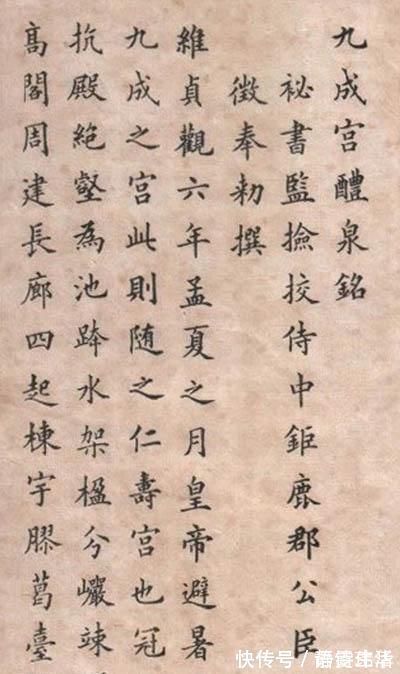 九成宮醴泉銘
祕書監撿挍侍中鉅鹿郡公臣
徵奉勑撰
維貞觀六年孟夏之月皇帝避暑
九成之宮此則随之仁壽宮也冠
抗殿絕壑為池跨水架楹分巖竦
髙閣周建長廊四起棟宇膠葛臺
快传号/